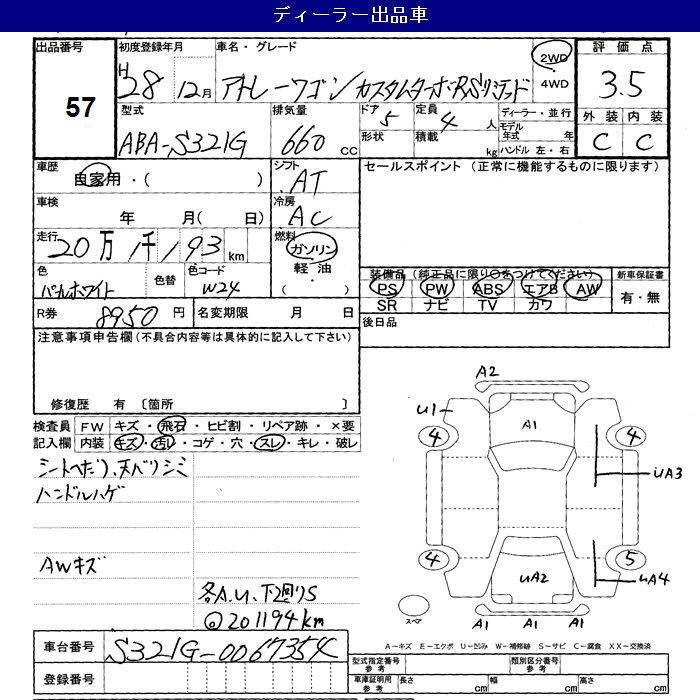 ディーラー出品車
出品番号 57
初度登録年月 H28 12月
車名・グレード アトレーワゴン カスタムターボRSリミテッド
2WD・4WD
評価点 3.5
外装 内装
C C
型式 ABA-S321G
排気量 660 CC
ドア 5
形状
定員 4 人
積載 kg
ディーラー・並行
モデル年式 年
ハンドル 左・右
車歴 自家用・( )
シフト AT
セールスポイント (正常に機能するものに限ります)
車検 年 月( 日)
冷房 AC
走行 20万1千193km
燃料 ガソリン 軽油 ( )
色 パールホワイト
色替
色コード W24
装備品 (純正品に限り○をつけてください)
PS PW ABS エアB AW
SR ナビ TV カワ
新車保証書 有・無
R券 8950円
名変期限 月 日
後日品
注意事項申告欄(不具合内容等は具体的に記入して下さい)
修復歴 有 〔箇所 〕
検査員記入欄
FW キズ・飛石・ヒビ割・リペア跡・×要
内装 キズ・汚れ・コゲ・穴・スレ・キレ・破レ
シートへたり、天バリシミ
ハンドルハゲ
AWキズ
各A.U、下廻りS
@201194km
A2
U1
A1
4 4
UA3
4 5
UA2
UA4
スペア
A1 A1 A1
A－キズ E－エクボ U－凹み W－補修跡 S－サビ C－腐食 XX－交換済
車台番号 S321G-0067354
登録番号
型式指定番号 参考
類別区分番号 参考
車庫証明用 参考 長さ cm 幅 cm 高さ cm